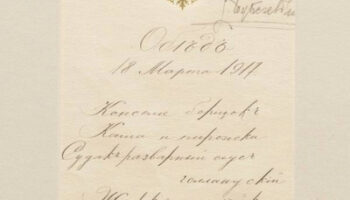 Обѣдъ
18 Марта 1917
Консоме борщокъ
Каша и пирожки
Судакъ разварный соус
голландскій